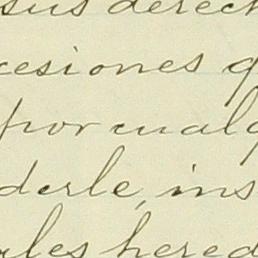 sus derech
cesiones q
por cualq
derle, ins
ales hered